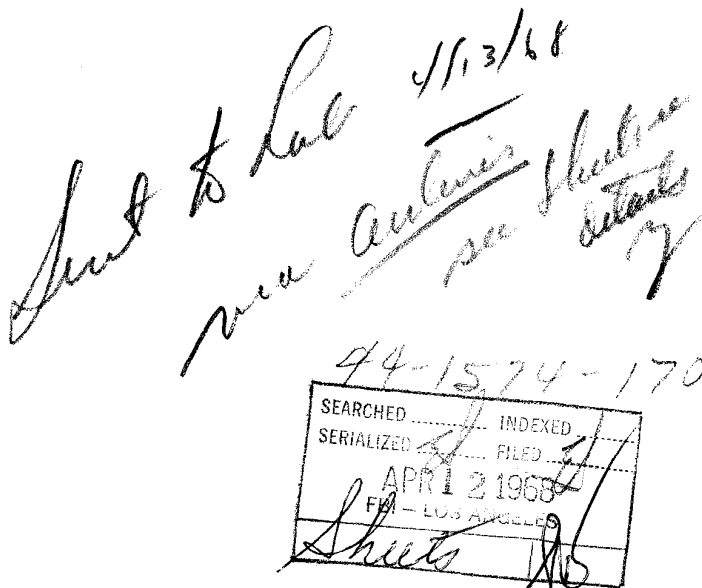 Sent to Lab 4/13/68
via airlines
see sheets
details
44-1574-170
SEARCHED ........ INDEXED ........
SERIALIZED ........ FILED ........
APR 12 1968
FBI – LOS ANGELES
Sheets